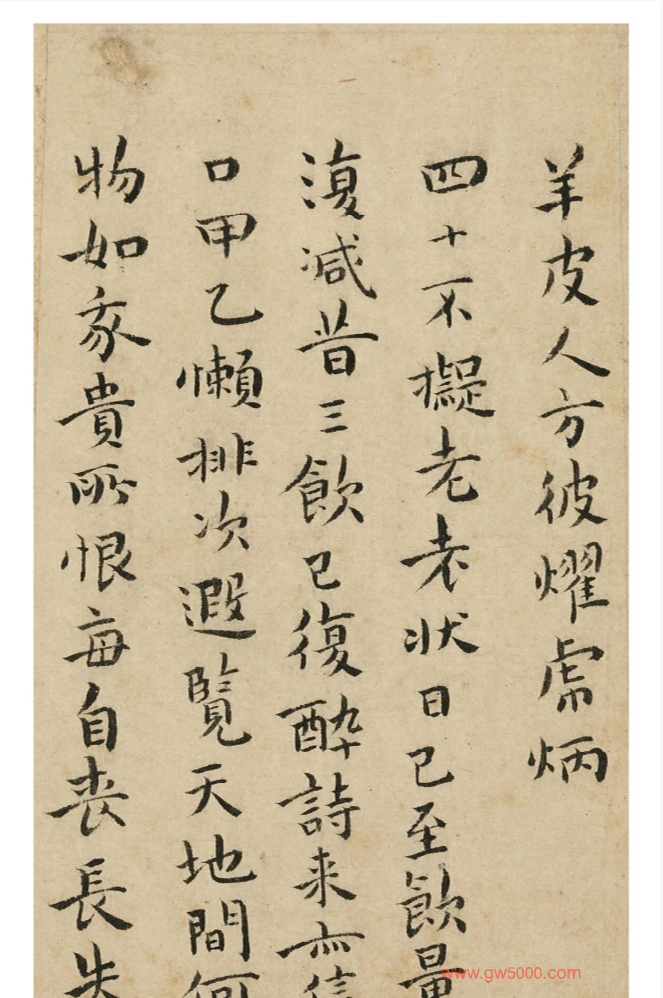 羊皮人方彼耀虎炳
四十不擬老老狀日已至飲量
復減昔三飲已復醉詩来亦信
口甲乙懶排次遐覽天地間何
物如我貴所恨每自喪長失
www.gw5000.com